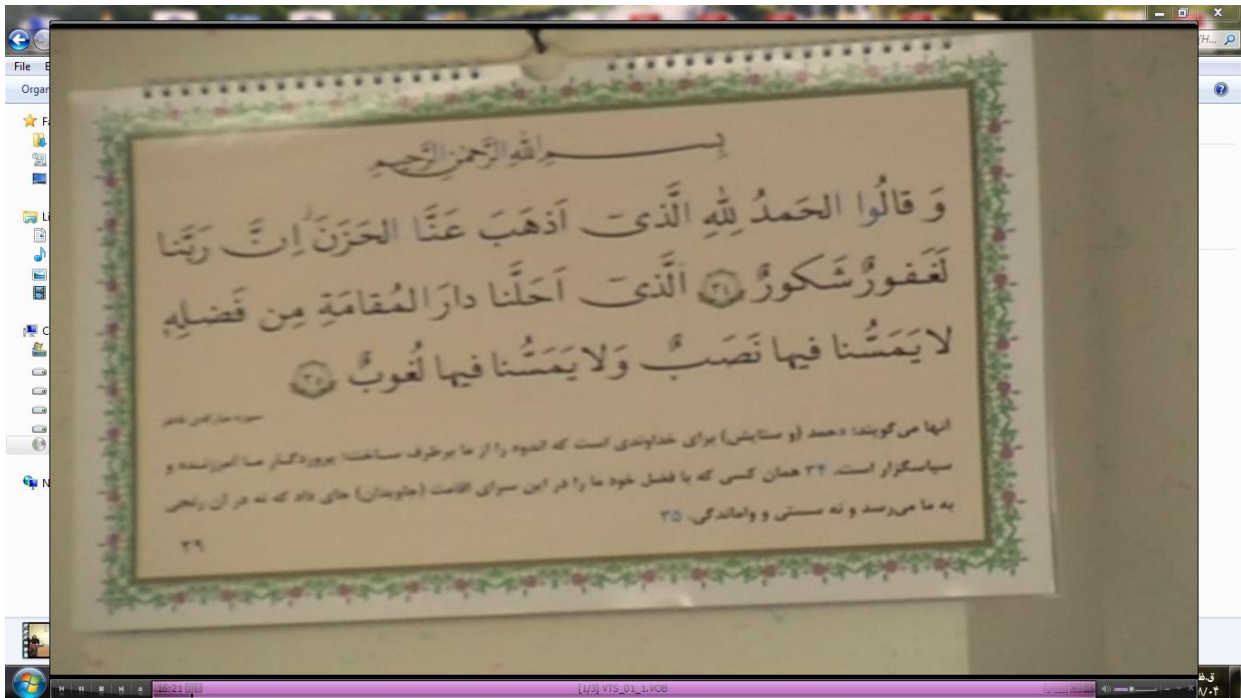 File
Organ
بِسْمِ اللهِ الرَّحْمٰنِ الرَّحیمِ
وَ قالُوا الحَمدُ لِلّٰهِ الَّذی اَذهَبَ عَنَّا الحَزَنَ ۖ اِنَّ رَبَّنا
لَغَفورٌ شَكورٌ ٣٤ اَلَّذی اَحَلَّنا دارَ المُقامَةِ مِن فَضلِهٖ
لا یَمَسُّنا فیها نَصَبٌ وَلا یَمَسُّنا فیها لُغوبٌ ٣٥
سوره مبارکه‌ی فاطر
آنها می‌گویند: «حمد (و ستایش) برای خداوندی است که اندوه را از ما برطرف ساخت؛ پروردگار ما آمرزنده و
سپاسگزار است. ۳۴ همان کسی که با فضل خود ما را در این سرای اقامت (جاویدان) جای داد که نه در آن رنجی
به ما می‌رسد و نه سستی و واماندگی. ۳۵
۳۹
16:21
[1/3] VTS_01_1.VOB
ق.ظ